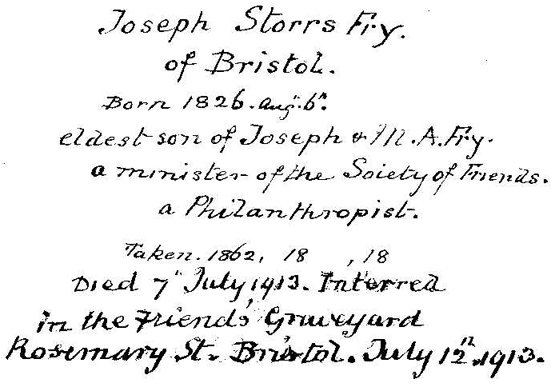 Joseph Storrs Fry.
of Bristol.
Born 1826. Aug. 6th.
eldest son of Joseph & M. A. Fry.
a minister of the Soiety of Friends.
a Philanthropist.
Taken. 1862, 18 , 18
Died 7th July 1913. Interred
in the Friends' Graveyard
Rosemary St. Bristol. July 12th. 1913.